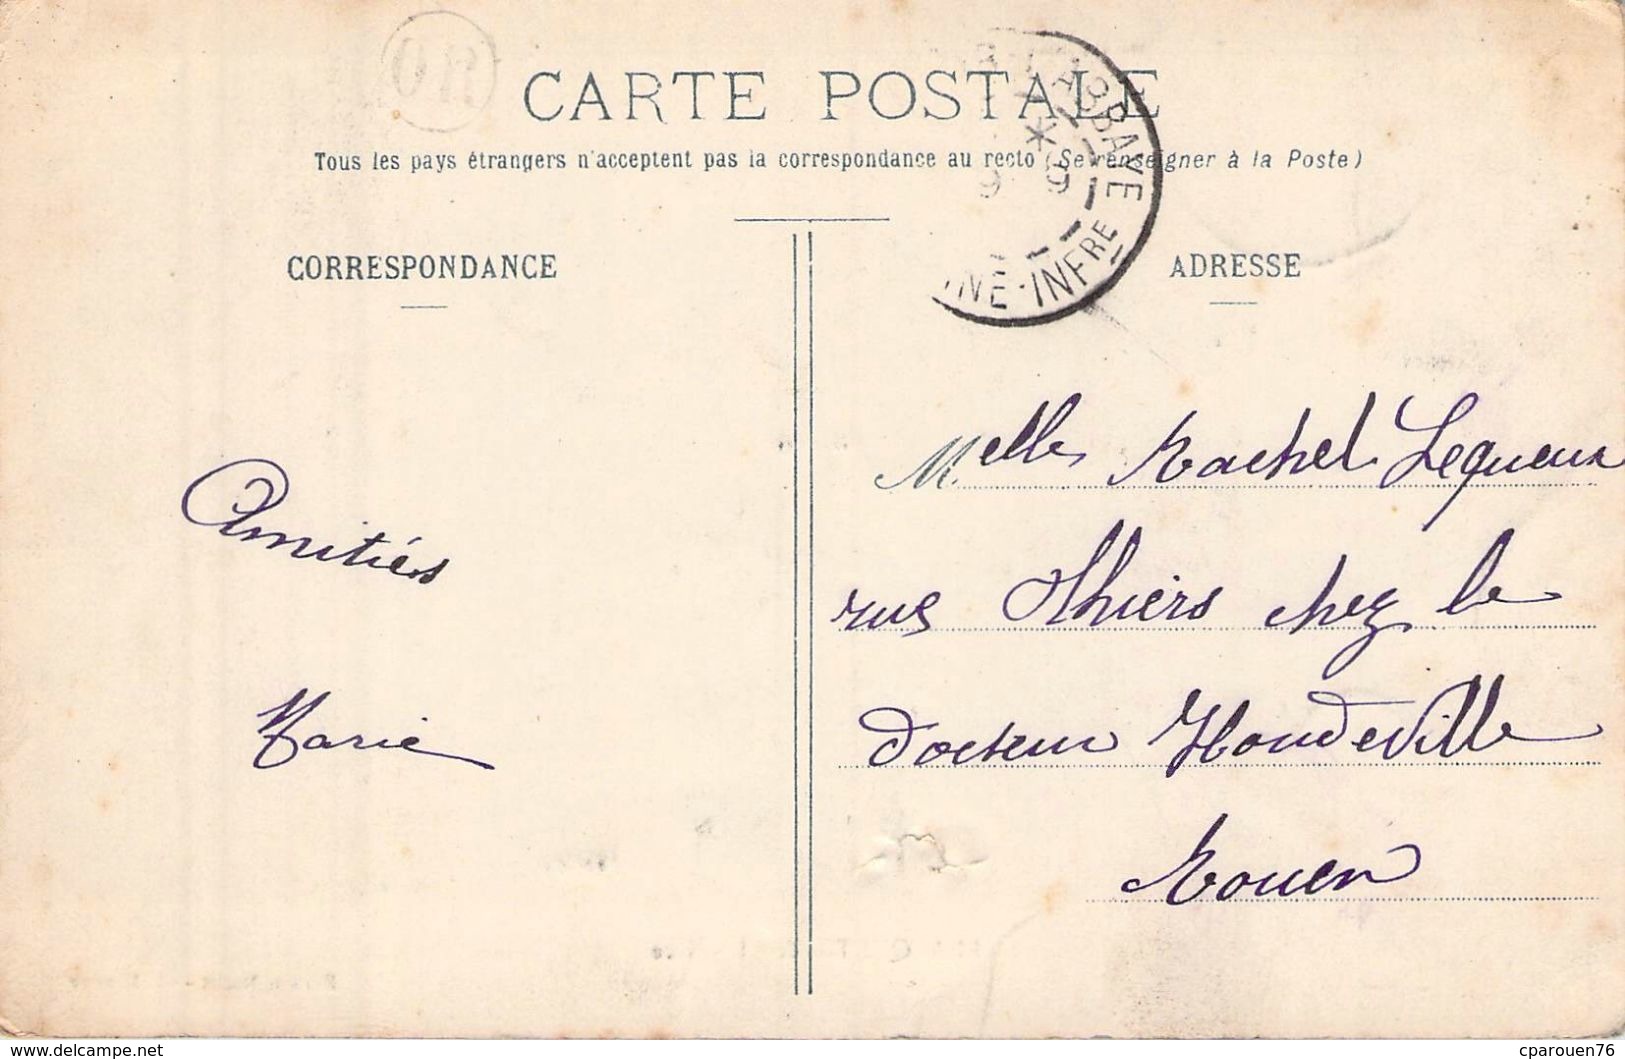 CARTE POSTALE
Tous les pays étrangers n'acceptent pas la correspondance au recto (Se renseigner à la Poste)
L'ABBAYE
INE-INFRE
CORRESPONDANCE
ADRESSE
Melle Rachel Lequeux
rue Thiers chez le
docteur Houdeville
Rouen
Amitiés
Marie
www.delcampe.net
cparouen76